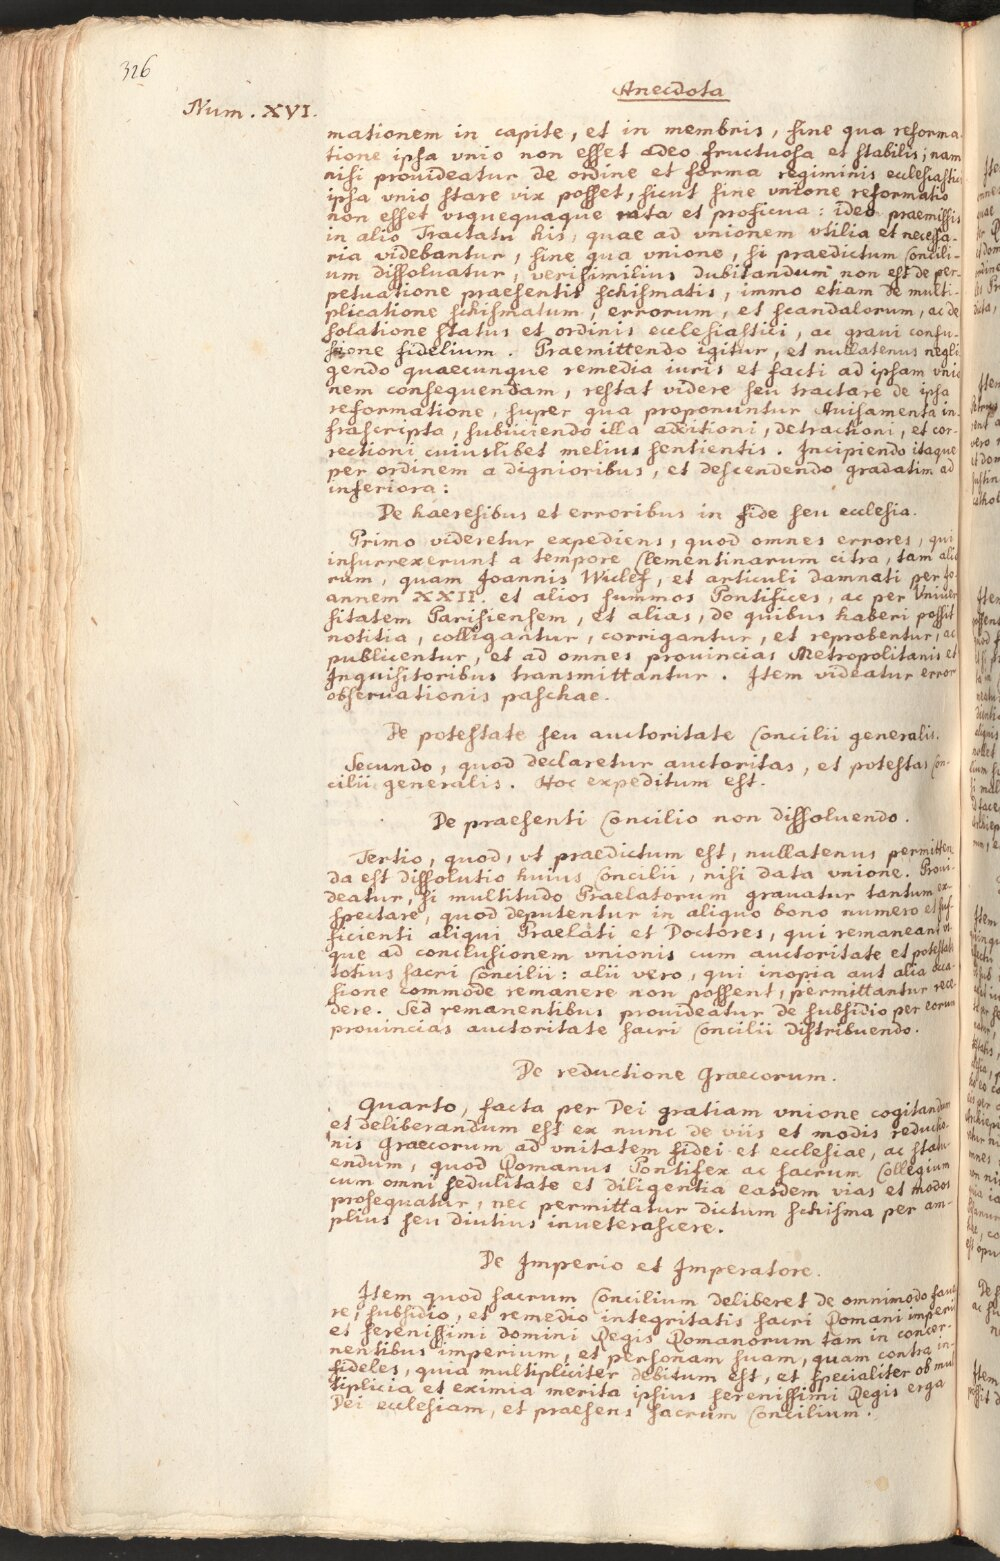 326
Anecdota
Num. XVI.
mationem in capite, et in membris, sine qua reforma-
tione ipsa vnio non esset adeo fructuosa et stabilis; nam
nisi prouideatur de ordine et forma regiminis ecclesiastici
ipsa vnio stare vix posset, sicut sine vnione reformatio
non esset vsquequaque rata et proficua: ideo praemissis
in alio Tractatu his, quae ad vnionem vtilia et necessa-
ria videbantur, sine qua vnione, si praedictum Concili-
um dissoluatur, verisimilius dubitandum non est de per-
petuatione praesentis schismatis, immo etiam de multi-
plicatione schismatum, errorum, et scandalorum, ac de
solatione status et ordinis ecclesiastici, ac graui confu-
sione fidelium. Praemittendo igitur, et nullatenus negli
gendo quaecunque remedia iuris et facti ad ipsam vnio
nem consequendam, restat videre seu tractare de ipsa
reformatione, super qua proponuntur Auisamenta in-
frascripta, subiiciendo illa additioni, detractioni, et cor-
rectioni cuiuslibet melius sentientis. Incipiendo itaque
per ordinem a dignioribus, et descendendo gradatim ad
inferiora:
De haeresibus et erroribus in fide seu ecclesia.
Primo videretur expediens, quod omnes errores, qui
insurrexerunt a tempore Clementinarum citra, tam alio
rum, quam Joannis Wiclef, et articuli damnati per Jo-
annem XXII. et alios summos Pontifices, ac per Vniuer
sitatem Parisiensem, et alias, de quibus haberi possit
notitia, colligantur, corrigantur, et reprobentur, ac
publicentur, et ad omnes prouincias Metropolitanis et
Inquisitoribus transmittantur. Item videatur error
obseruationis paschae.
De potestate seu auctoritate Concilii generalis.
Secundo, quod declaretur auctoritas, et potestas Con-
cilii generalis. Hoc expeditum est.
De praesenti Concilio non dissoluendo.
Tertio, quod, vt praedictum est, nullatenus permitten
da est dissolutio huius Concilii, nisi data vnione. Proui-
deatur, si multitudo Praelatorum grauatur tantum ex-
spectare, quod deputentur in aliquo bono numero et suf-
ficienti aliqui Praelati et Doctores, qui remaneant vs-
que ad conclusionem vnionis cum auctoritate et potestate
totius sacri Concilii: alii vero, qui inopia aut alia occa-
sione commode remanere non possent, permittantur rece-
dere. Sed remanentibus prouideatur de subsidio per eorum
prouincias auctoritate sacri Concilii distribuendo.
De reductione Graecorum.
Quarto, facta per Dei gratiam vnione cogitandum
et deliberandum est ex nunc de viis et modis reductio-
nis Graecorum ad vnitatem fidei et ecclesiae, ac statu-
endum, quod Romanus Pontifex ac sacrum Collegium
cum omni sedulitate et diligentia easdem vias et modos
prosequatur, nec permittatur dictum schisma per am-
plius seu diutius inueterascere.
De Imperio et Imperatore.
Item quod sacrum Concilium deliberet de omnimodo fauo
re, subsidio, et remedio integritatis sacri Romani imperii
et serenissimi domini Regis Romanorum tam in concer-
nentibus imperium, et personam suam, quam contra in-
fideles, quia multipliciter debitum est, et specialiter ob mul
tiplicia et eximia merita ipsius serenissimi Regis erga
Dei ecclesiam, et praesens sacrum Concilium.